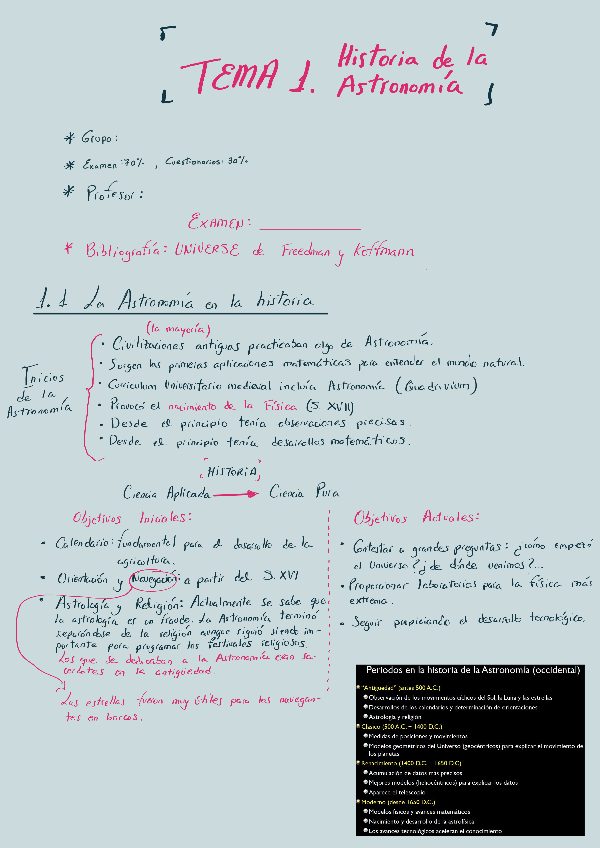 TEMA 1. Historia de la
Astronomía
* Grupo:
* Examen: 70% , Cuestionarios: 30%
* Profesor:
EXAMEN:
* Bibliografía: UNIVERSE de Freedman y Koffmann
1.1 La Astronomía en la historia
Inicios
de la
Astronomía
(la mayoría)
· Civilizaciones antiguas practicaban algo de Astronomía.
· Surgen las primeras aplicaciones matemáticas para entender el mundo natural.
· Curriculum Universitario medieval incluía Astronomía (Quadrivium)
· Provocó el nacimiento de la Física (S. XVII)
· Desde el principio tenía observaciones precisas.
· Desde el principio tenía desarrollos matemáticos.
HISTORIA
Ciencia Aplicada → Ciencia Pura
Objetivos Iniciales:
• Calendario: fundamental para el desarollo de la
agricultura.
• Orientación y Navegación: a partir del S. XVI
• Astrología y Religión: Actualmente se sabe que
la astrología es un fraude. La Astronomía terminó
separándose de la religión aunque siguió siendo im-
portante para programar los festivales religiosos.
Los que se dedicaban a la Astronomía eran sa-
cerdotes en la antigüedad.
Las estrellas fueron muy útiles para los navegan-
tes en barcos.
Objetivos Actuales:
• Contestar a grandes preguntas: ¿cómo empezó
el Universo? ¿de dónde venimos?...
• Proporcionar laboratorios para la física más
extrema.
• Seguir propiciando el desarrollo tecnológico.
Periodos en la historia de la Astronomía (occidental)
"Antigüedad" (antes 500 A.C.)
Observación de los movimientos cíclicos del Sol, la Luna y las estrellas
Desarrollos de los calendarios y determinación de orientaciones
Astrología y religión
Clásico (500 A.C. – 1400 D.C.)
Medidas de posiciones y movimientos
Modelos geométricos del Universo (geocéntricos) para explicar el movimiento de
los planetas
Renacimiento (1400 D.C. – 1650 D.C)
Acumulación de datos más precisos
Mejores modelos (heliocéntricos) para explicar los datos
Aparece el telescopio
Moderno (desde 1650 D.C.)
Modelos físicos y avances matemáticos
Nacimiento y desarrollo de la astrofísica
Los avances tecnológicos aceleran el conocimiento